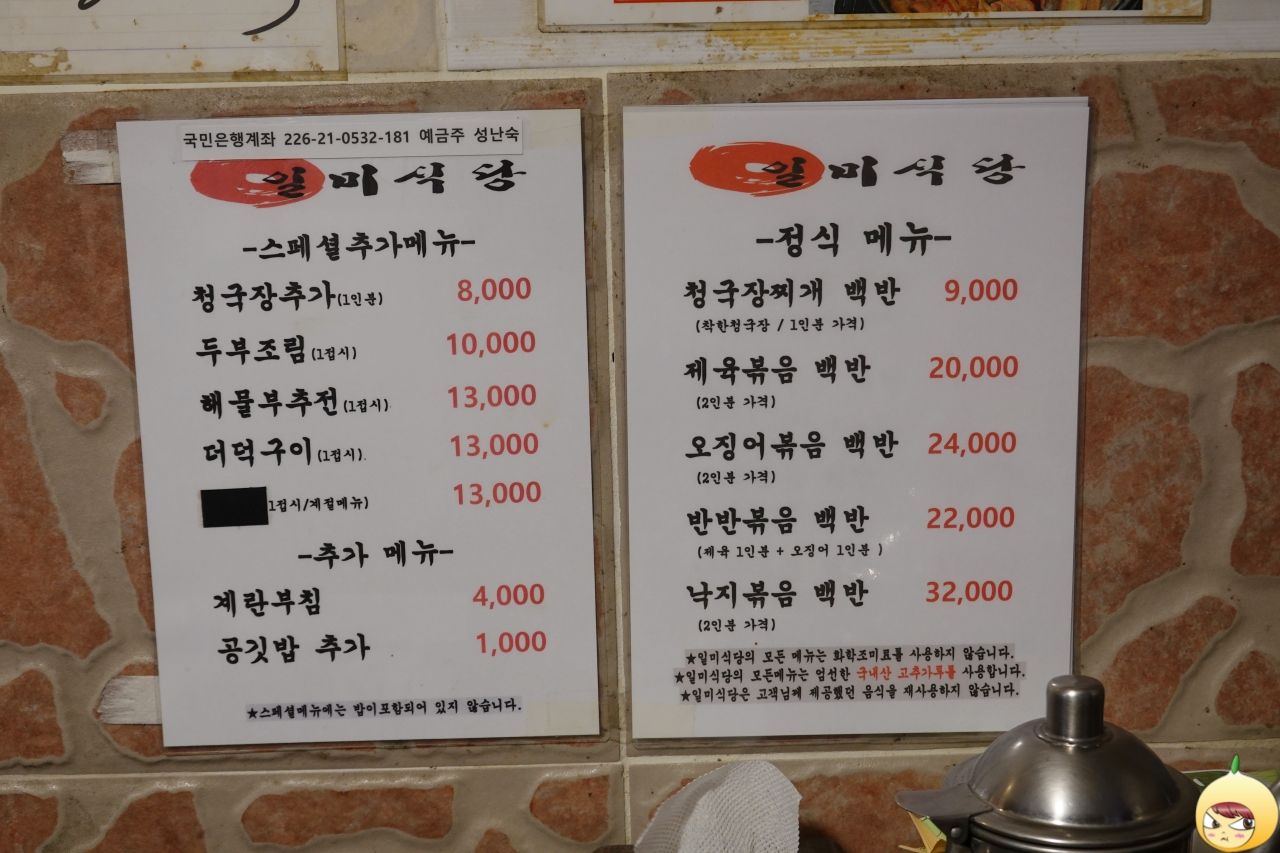 국민은행계좌 226-21-0532-181 예금주 성난숙
일미식당
-스페셜추가메뉴-
청국장추가(1인분) 8,000
두부조림(1접시) 10,000
해물부추전(1접시) 13,000
더덕구이(1접시) 13,000
1접시/계절메뉴) 13,000
-추가 메뉴-
계란부침 4,000
공깃밥 추가 1,000
★스페셜메뉴에는 밥이포함되어 있지 않습니다.
일미식당
-정식 메뉴-
청국장찌개 백반 9,000
(착한청국장 / 1인분 가격)
제육볶음 백반 20,000
(2인분 가격)
오징어볶음 백반 24,000
(2인분 가격)
반반볶음 백반 22,000
(제육 1인분 + 오징어 1인분 )
낙지볶음 백반 32,000
(2인분 가격)
★일미식당의 모든 메뉴는 화학조미료를 사용하지 않습니다.
★일미식당의 모든메뉴는 엄선한 국내산 고추가루를 사용합니다.
★일미식당은 고객님께 제공했던 음식을 재사용하지 않습니다.